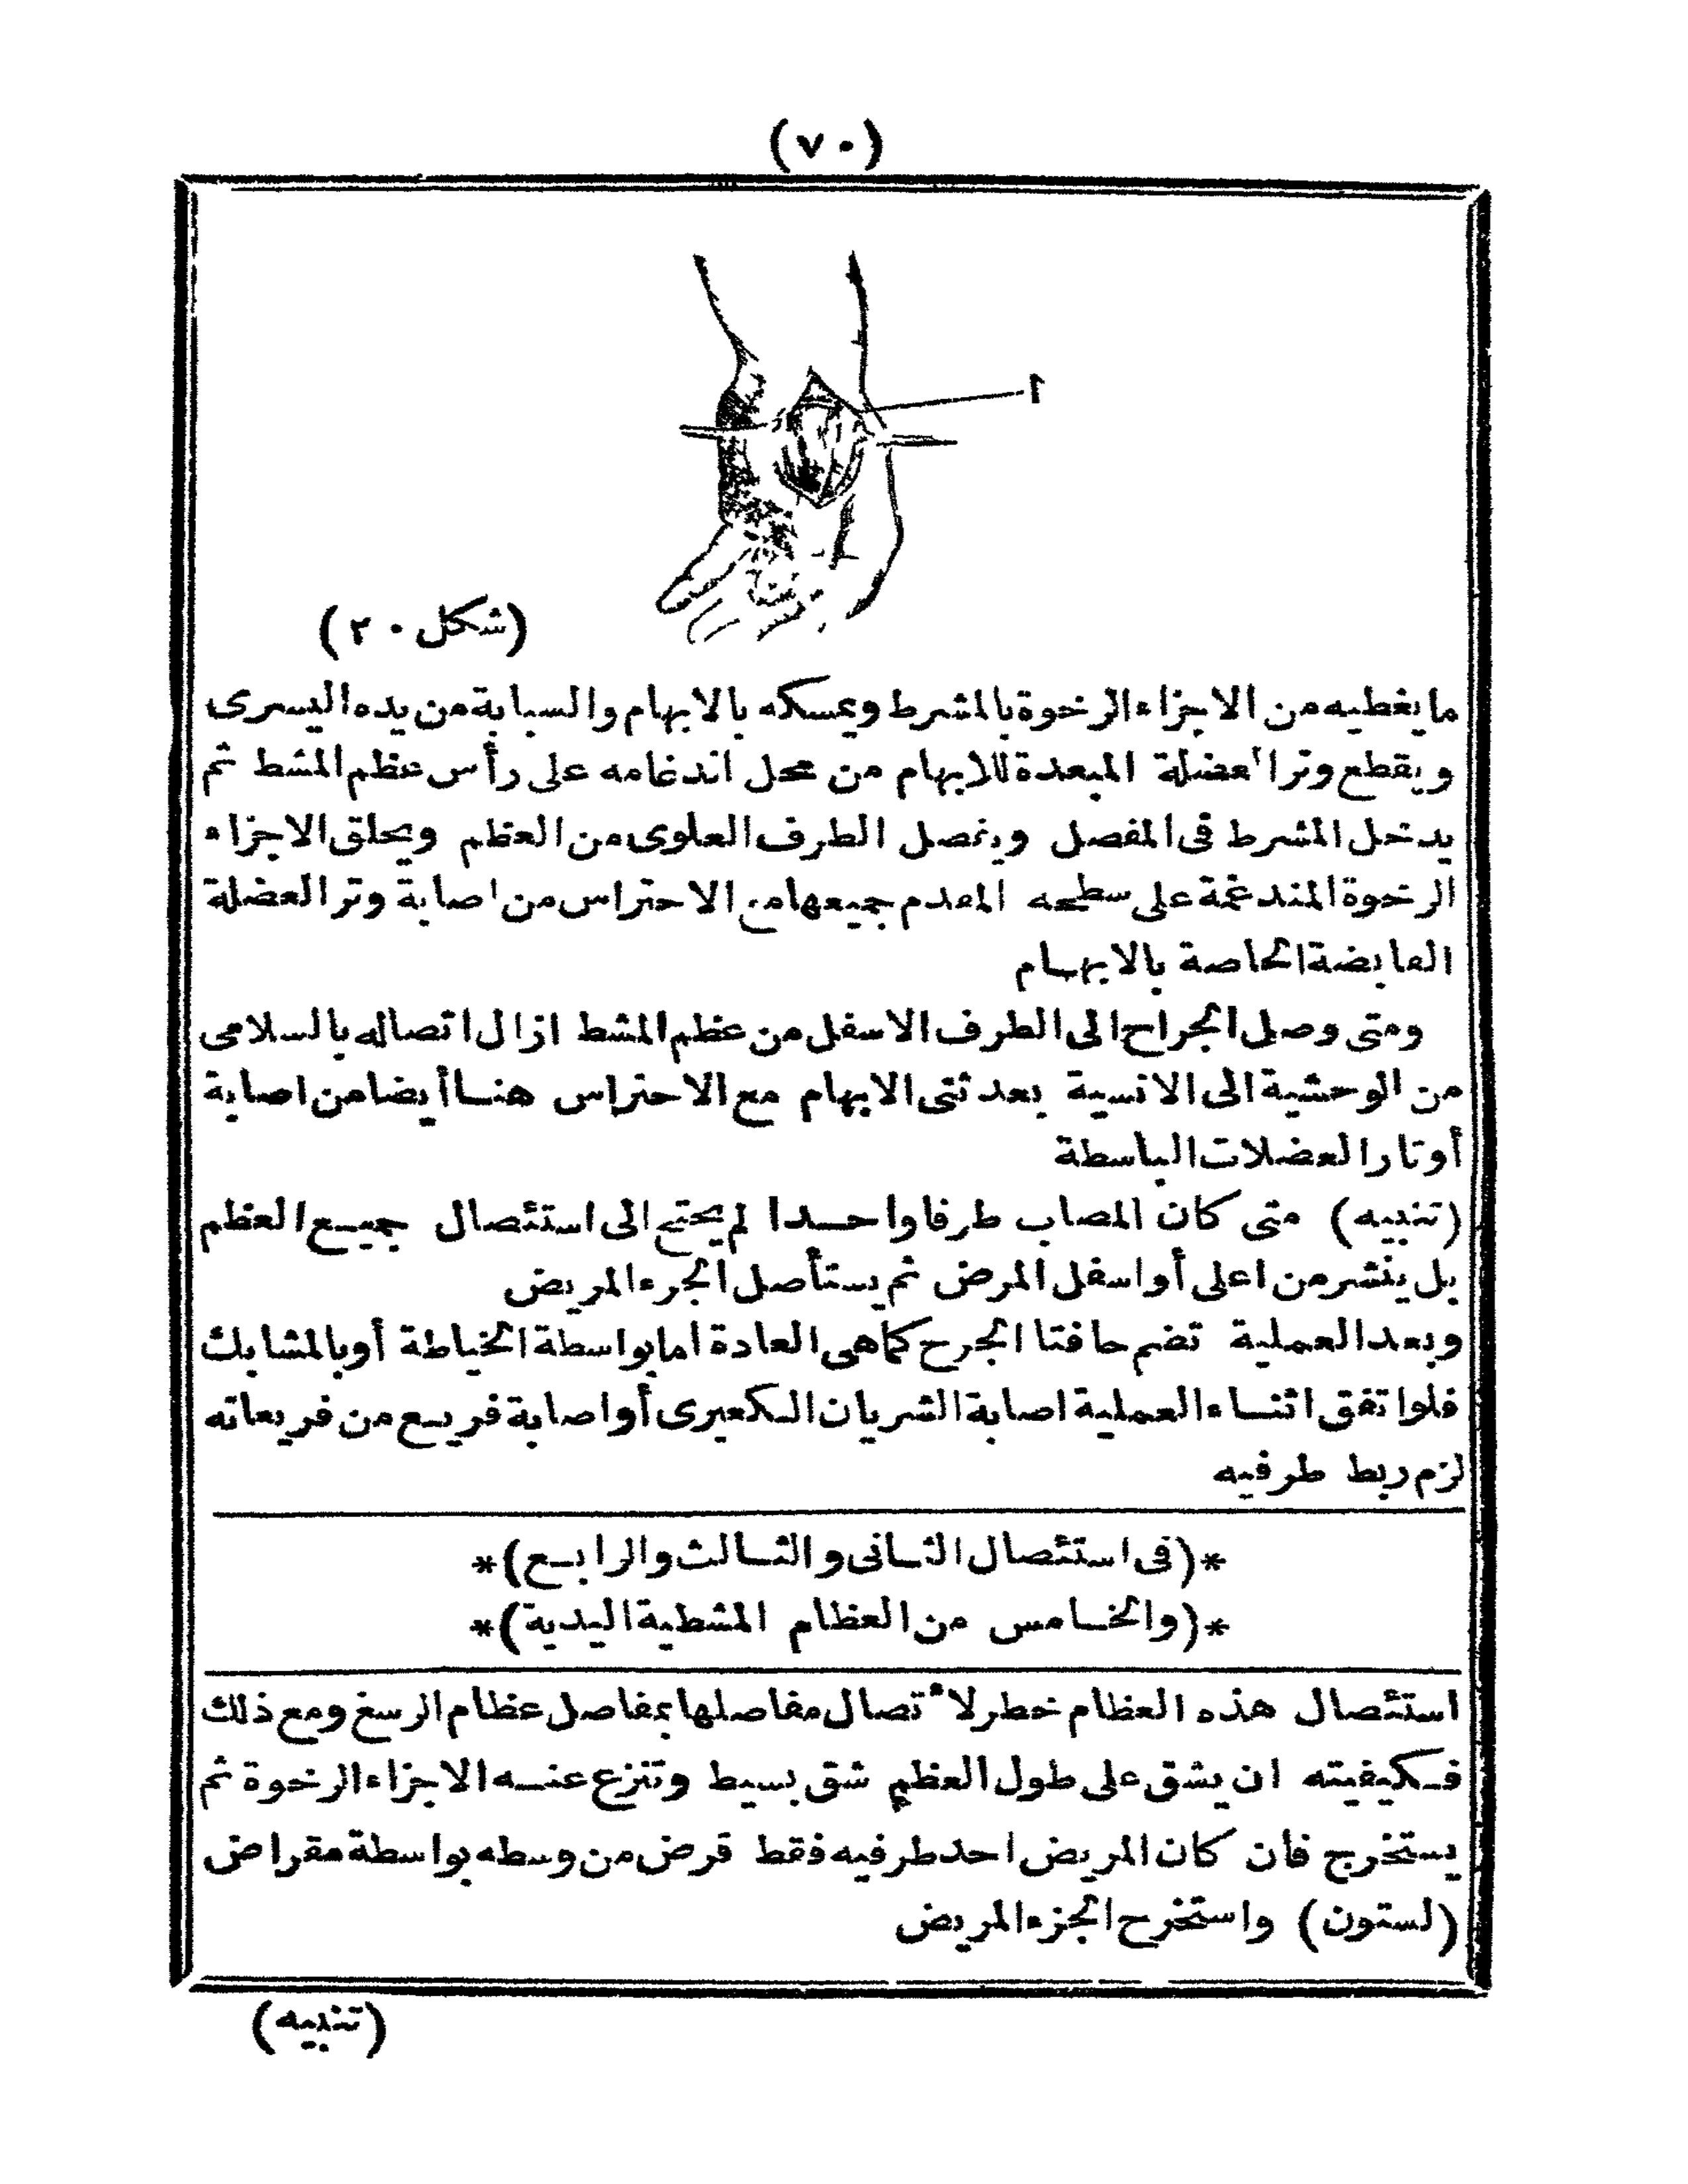 (٧٠)
١
(شكل ٢٠)
ما يغطيه من الاجزاء الرخوة بالمشرط ويمسكه بالابهام والسبابة من يده اليسرى
ويقطع وتر العضلة المبعدة للابهام من محل اندغامه على رأس عظم المشط ثم
يدخل المشرط فى المفصل ويفصل الطرف العلوى من العظم ويحلق الاجزاء
الرخوة المندغمة على سطحه المقدم جميعها مع الاحتراس من اصابة وتر العضلة
القابضة الخاصة بالابهام
ومتى وصل الجراح الى الطرف الاسفل من عظم المشط ازال اتصاله بالسلامى
من الوحشية الى الانسية بعد ثنى الابهام مع الاحتراس هنا أيضا من اصابة
أوتار العضلات الباسطة
(تنبيه) متى كان المصاب طرفا واحدا لم يحتج الى استئصال جميع العظم
بل ينشر من اعلى أو اسفل المرض ثم يستأصل الجزء المريض
وبعد العملية تضم حافتا الجرح كما هى العادة اما بواسطة الخياطة أو بالمشابك
فلو اتفق اثناء العملية اصابة الشريان الكعبرى أو اصابة فريع من فريعاته
لزم ربط طرفيه
*(فى استئصال الثانى والثالث والرابع)*
*(والخامس من العظام المشطية اليدية)*
استئصال هذه العظام خطر لاتصال مفاصلها بمفاصل عظام الرسغ ومع ذلك
فكيفيته ان يشق على طول العظم شق بسيط وتنزع عنه الاجزاء الرخوة ثم
يستخرج فان كان المريض احد طرفيه فقط قرض من وسطه بواسطة مقراض
(لستون) واستخرج الجزء المريض
(تنبيه)